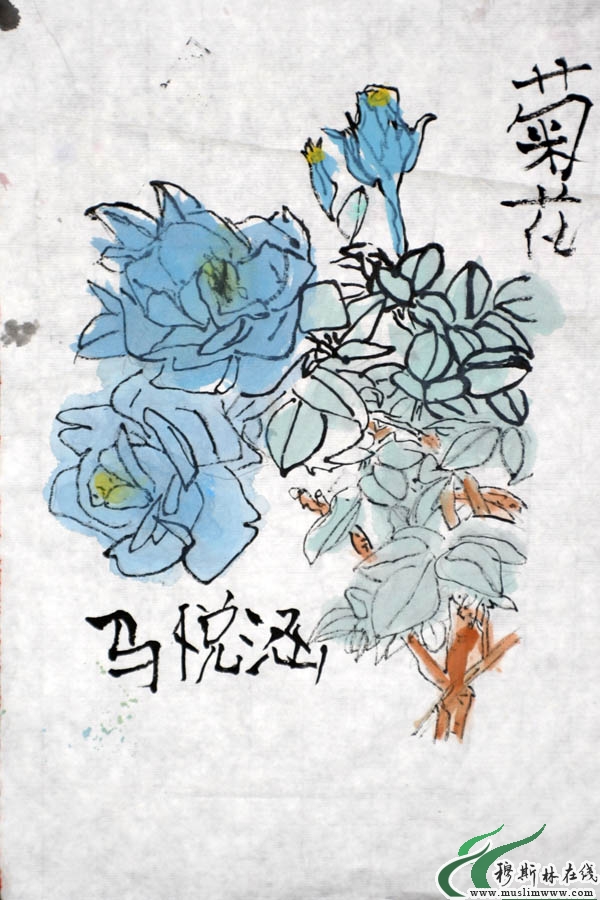 菊花
马悦涵
穆斯林在线
www.muslimwww.com